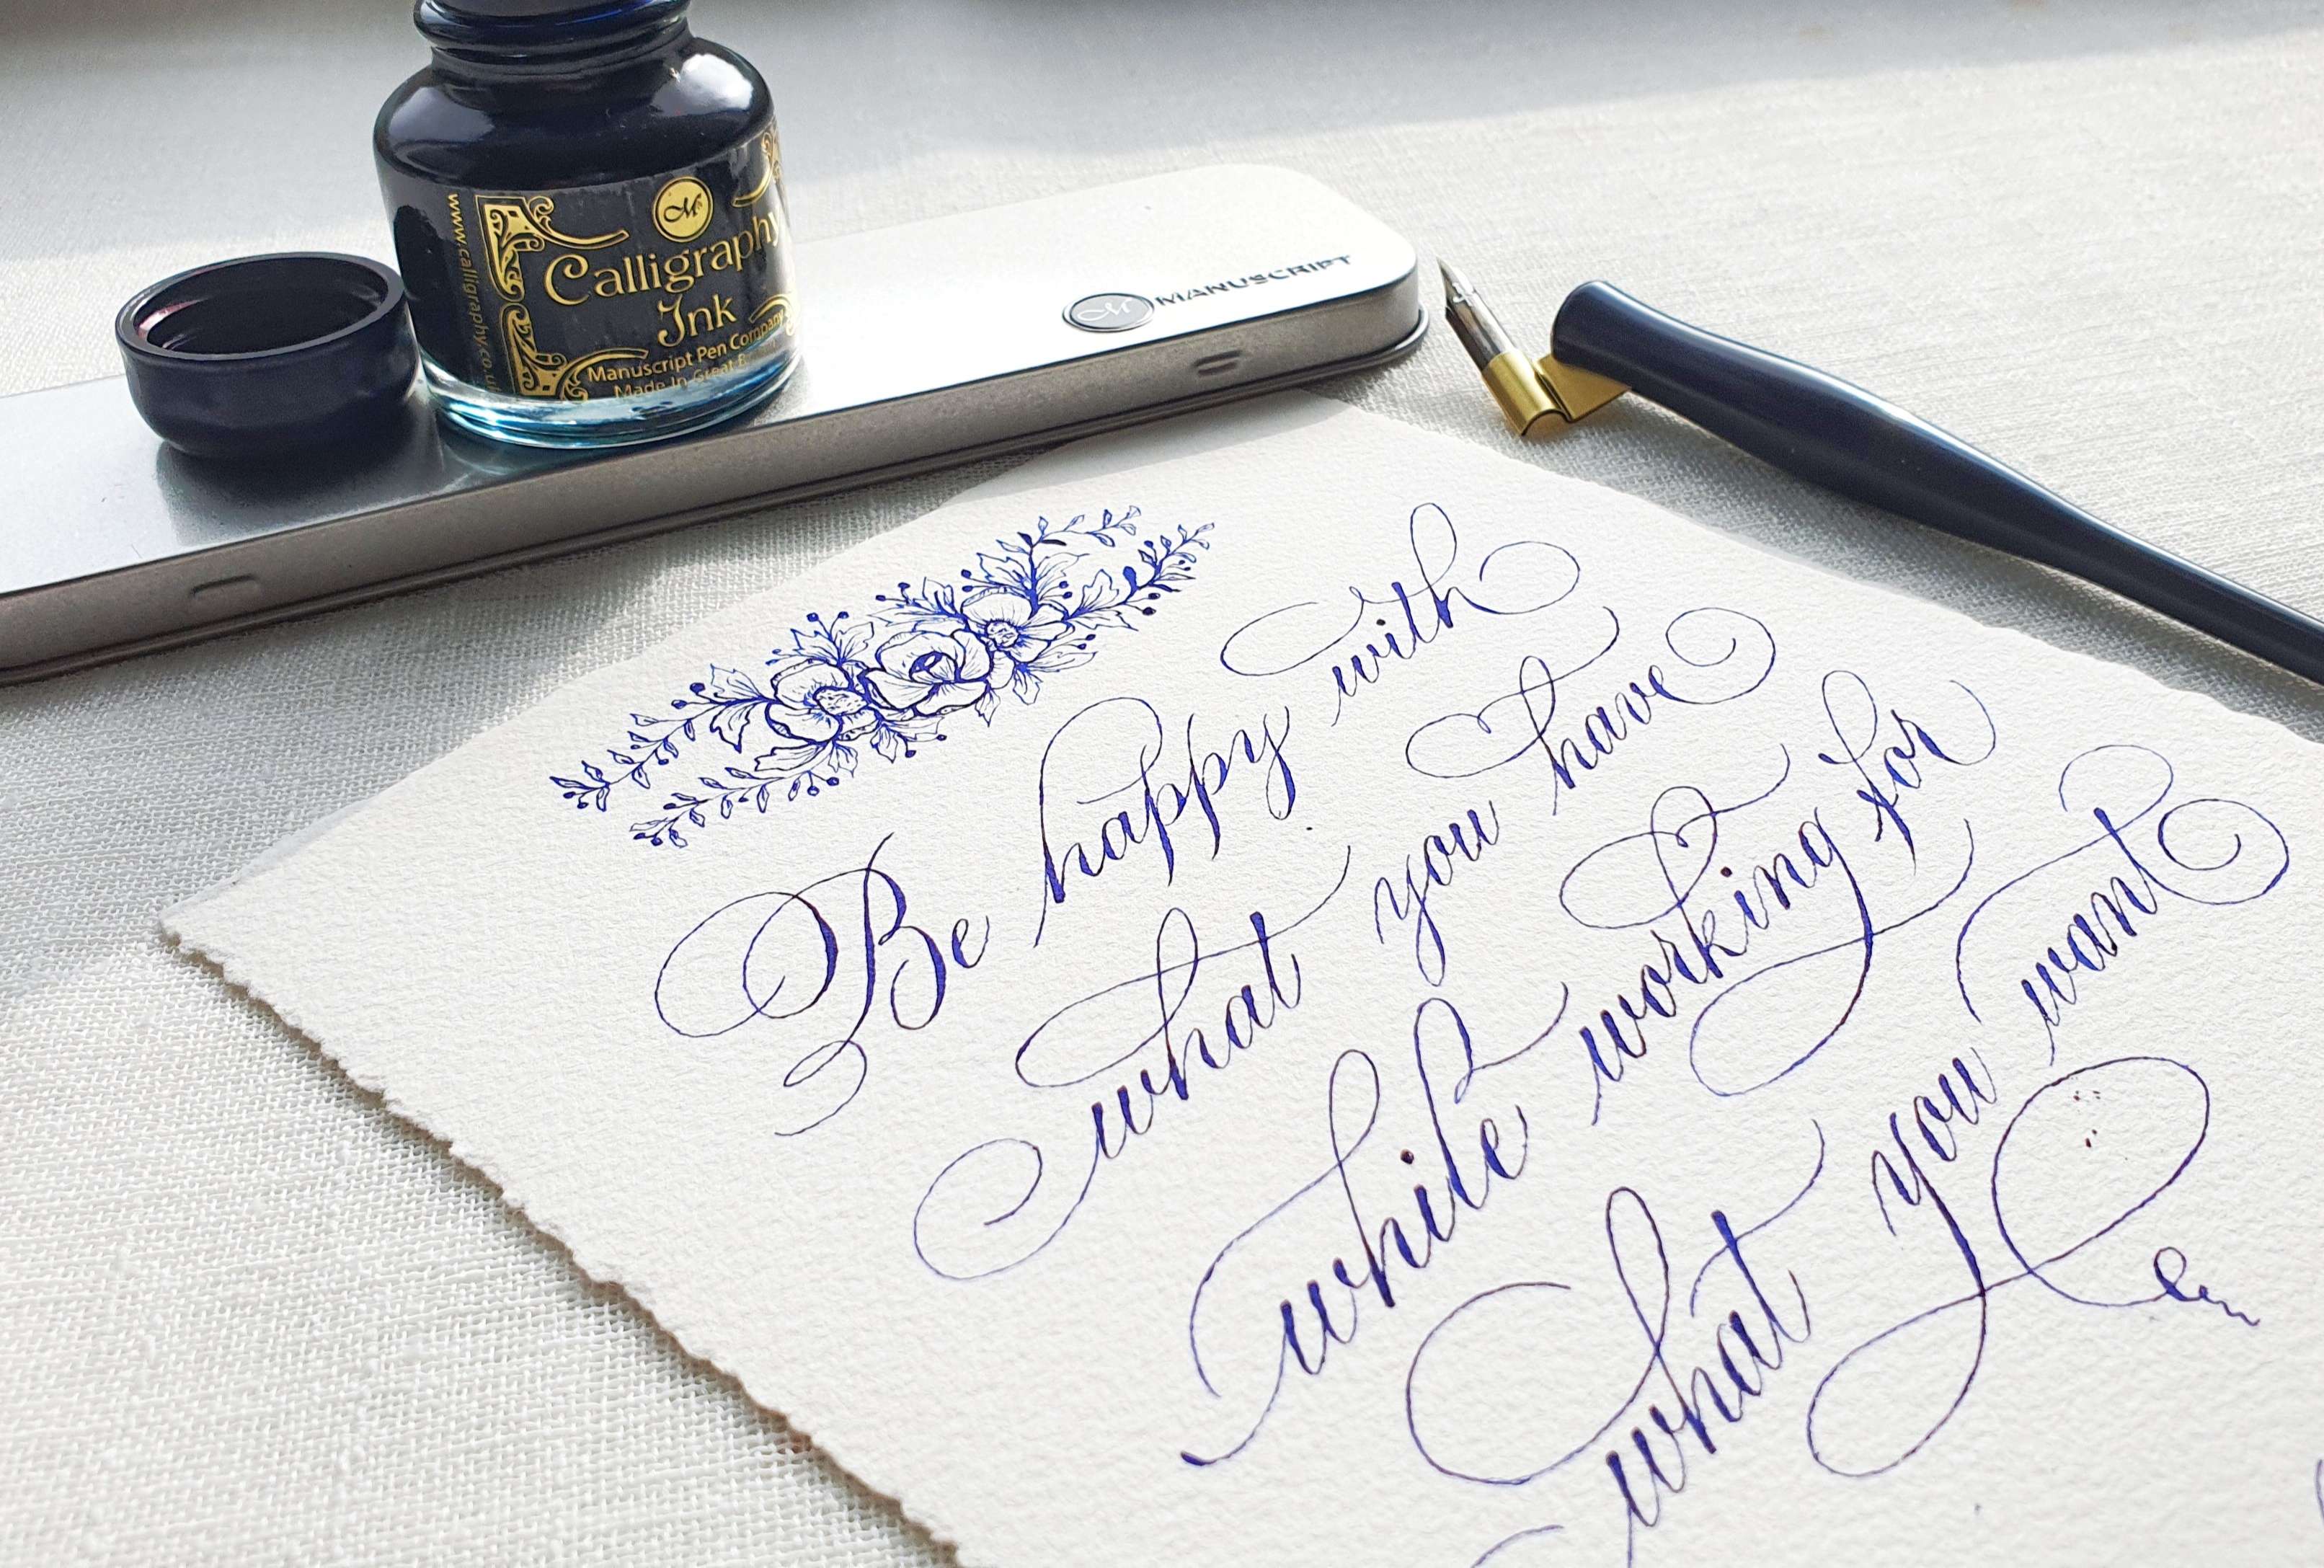 www.calligraphy.co.u
M
Calligraphy
Ink
Manuscript Pen Company
Made In Great
M MANUSCRIPT
Be happy with
what you have
while working for
what you want